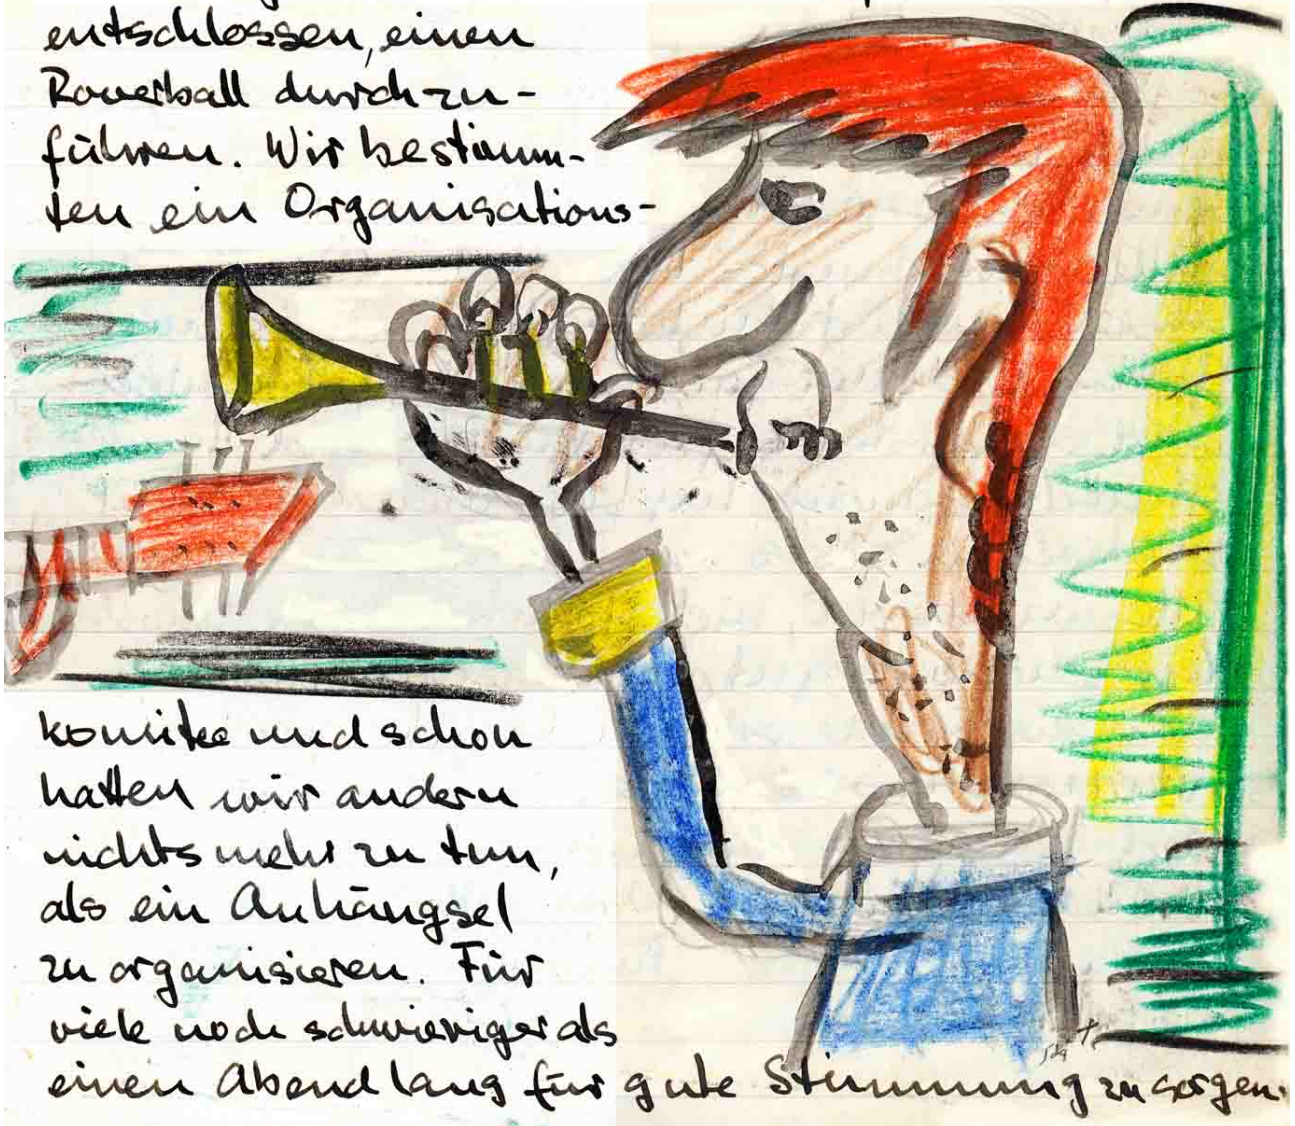 entschlossen, einen
Roverball durchzu-
führen. Wir bestimm-
ten ein Organisations-
komitee und schon
hatten wir andern
nichts mehr zu tun,
als ein Anhängsel
zu organisieren. Für
viele noch schwieriger als
einen Abend lang für gute Stimmung zu sorgen.